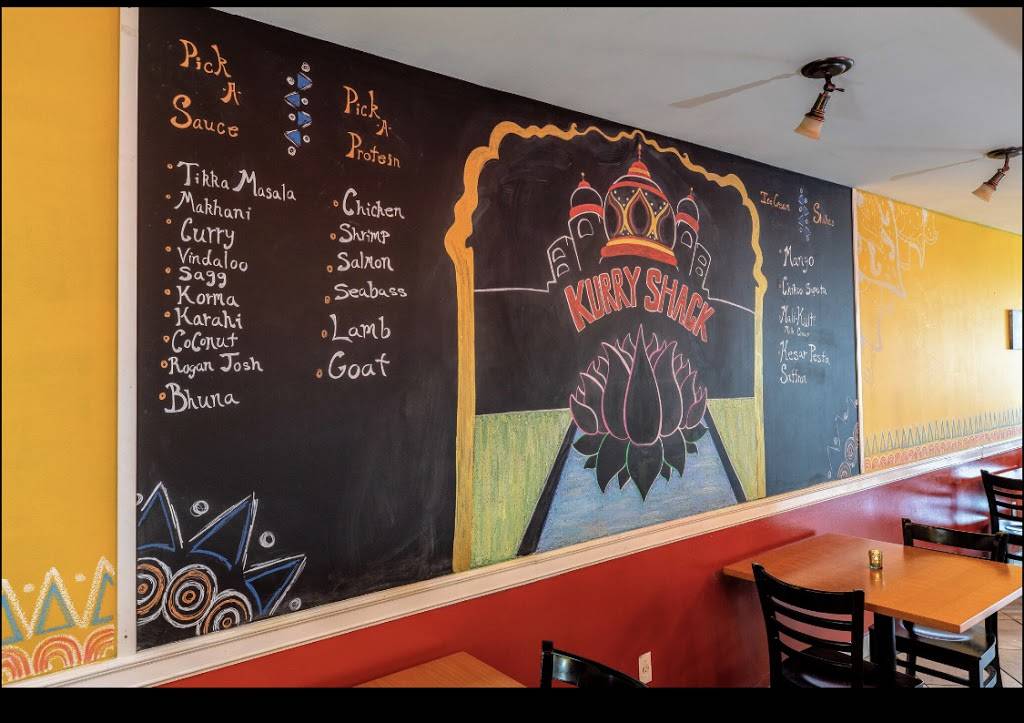 Pick
-A-
Sauce
Tikka Masala
Makhani
Curry
Vindaloo
Sagg
Korma
Karahi
Coconut
Rogan Josh
Bhuna
Pick
-A-
Protein
Chicken
Shrimp
Salmon
Seabass
Lamb
Goat
KURRY SHACK
Ice Cream
Shakes
Mango
Chikoo Sapota
Mali-Kulfi
Kesar Pesta
Saffron